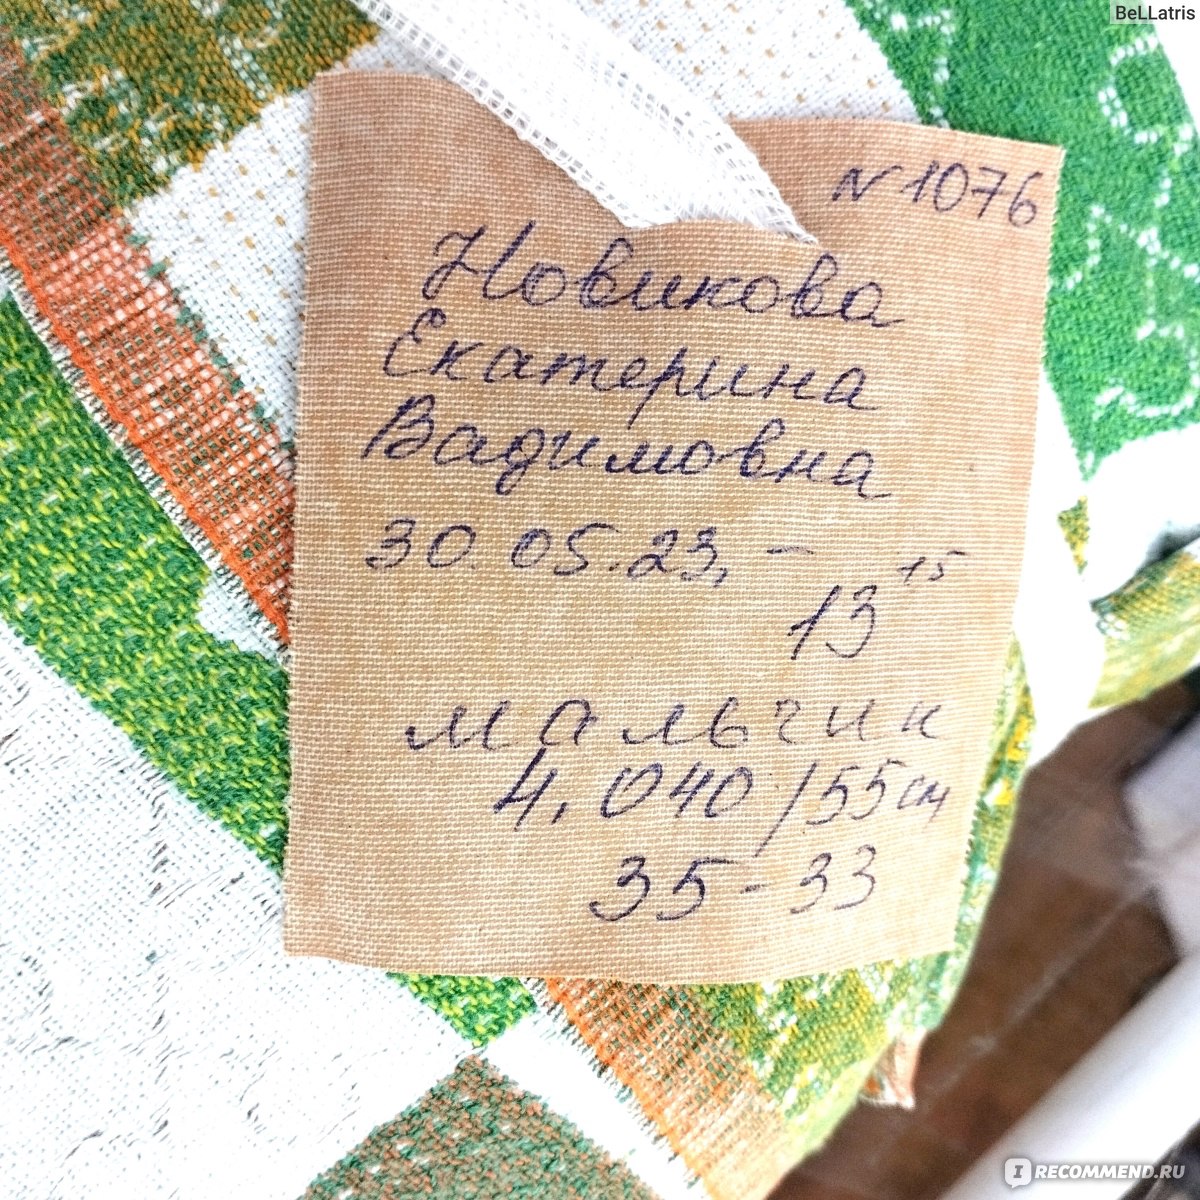 BeLLatris
N 1076
Новикова
Екатерина
Вадимовна
30.05.23, - 13 15
мальчик
4,040/55см
35-33
IRECOMMEND.RU